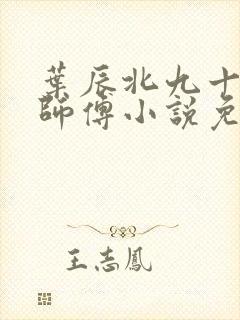 葉辰北九十
師傅小說免
王志鳳